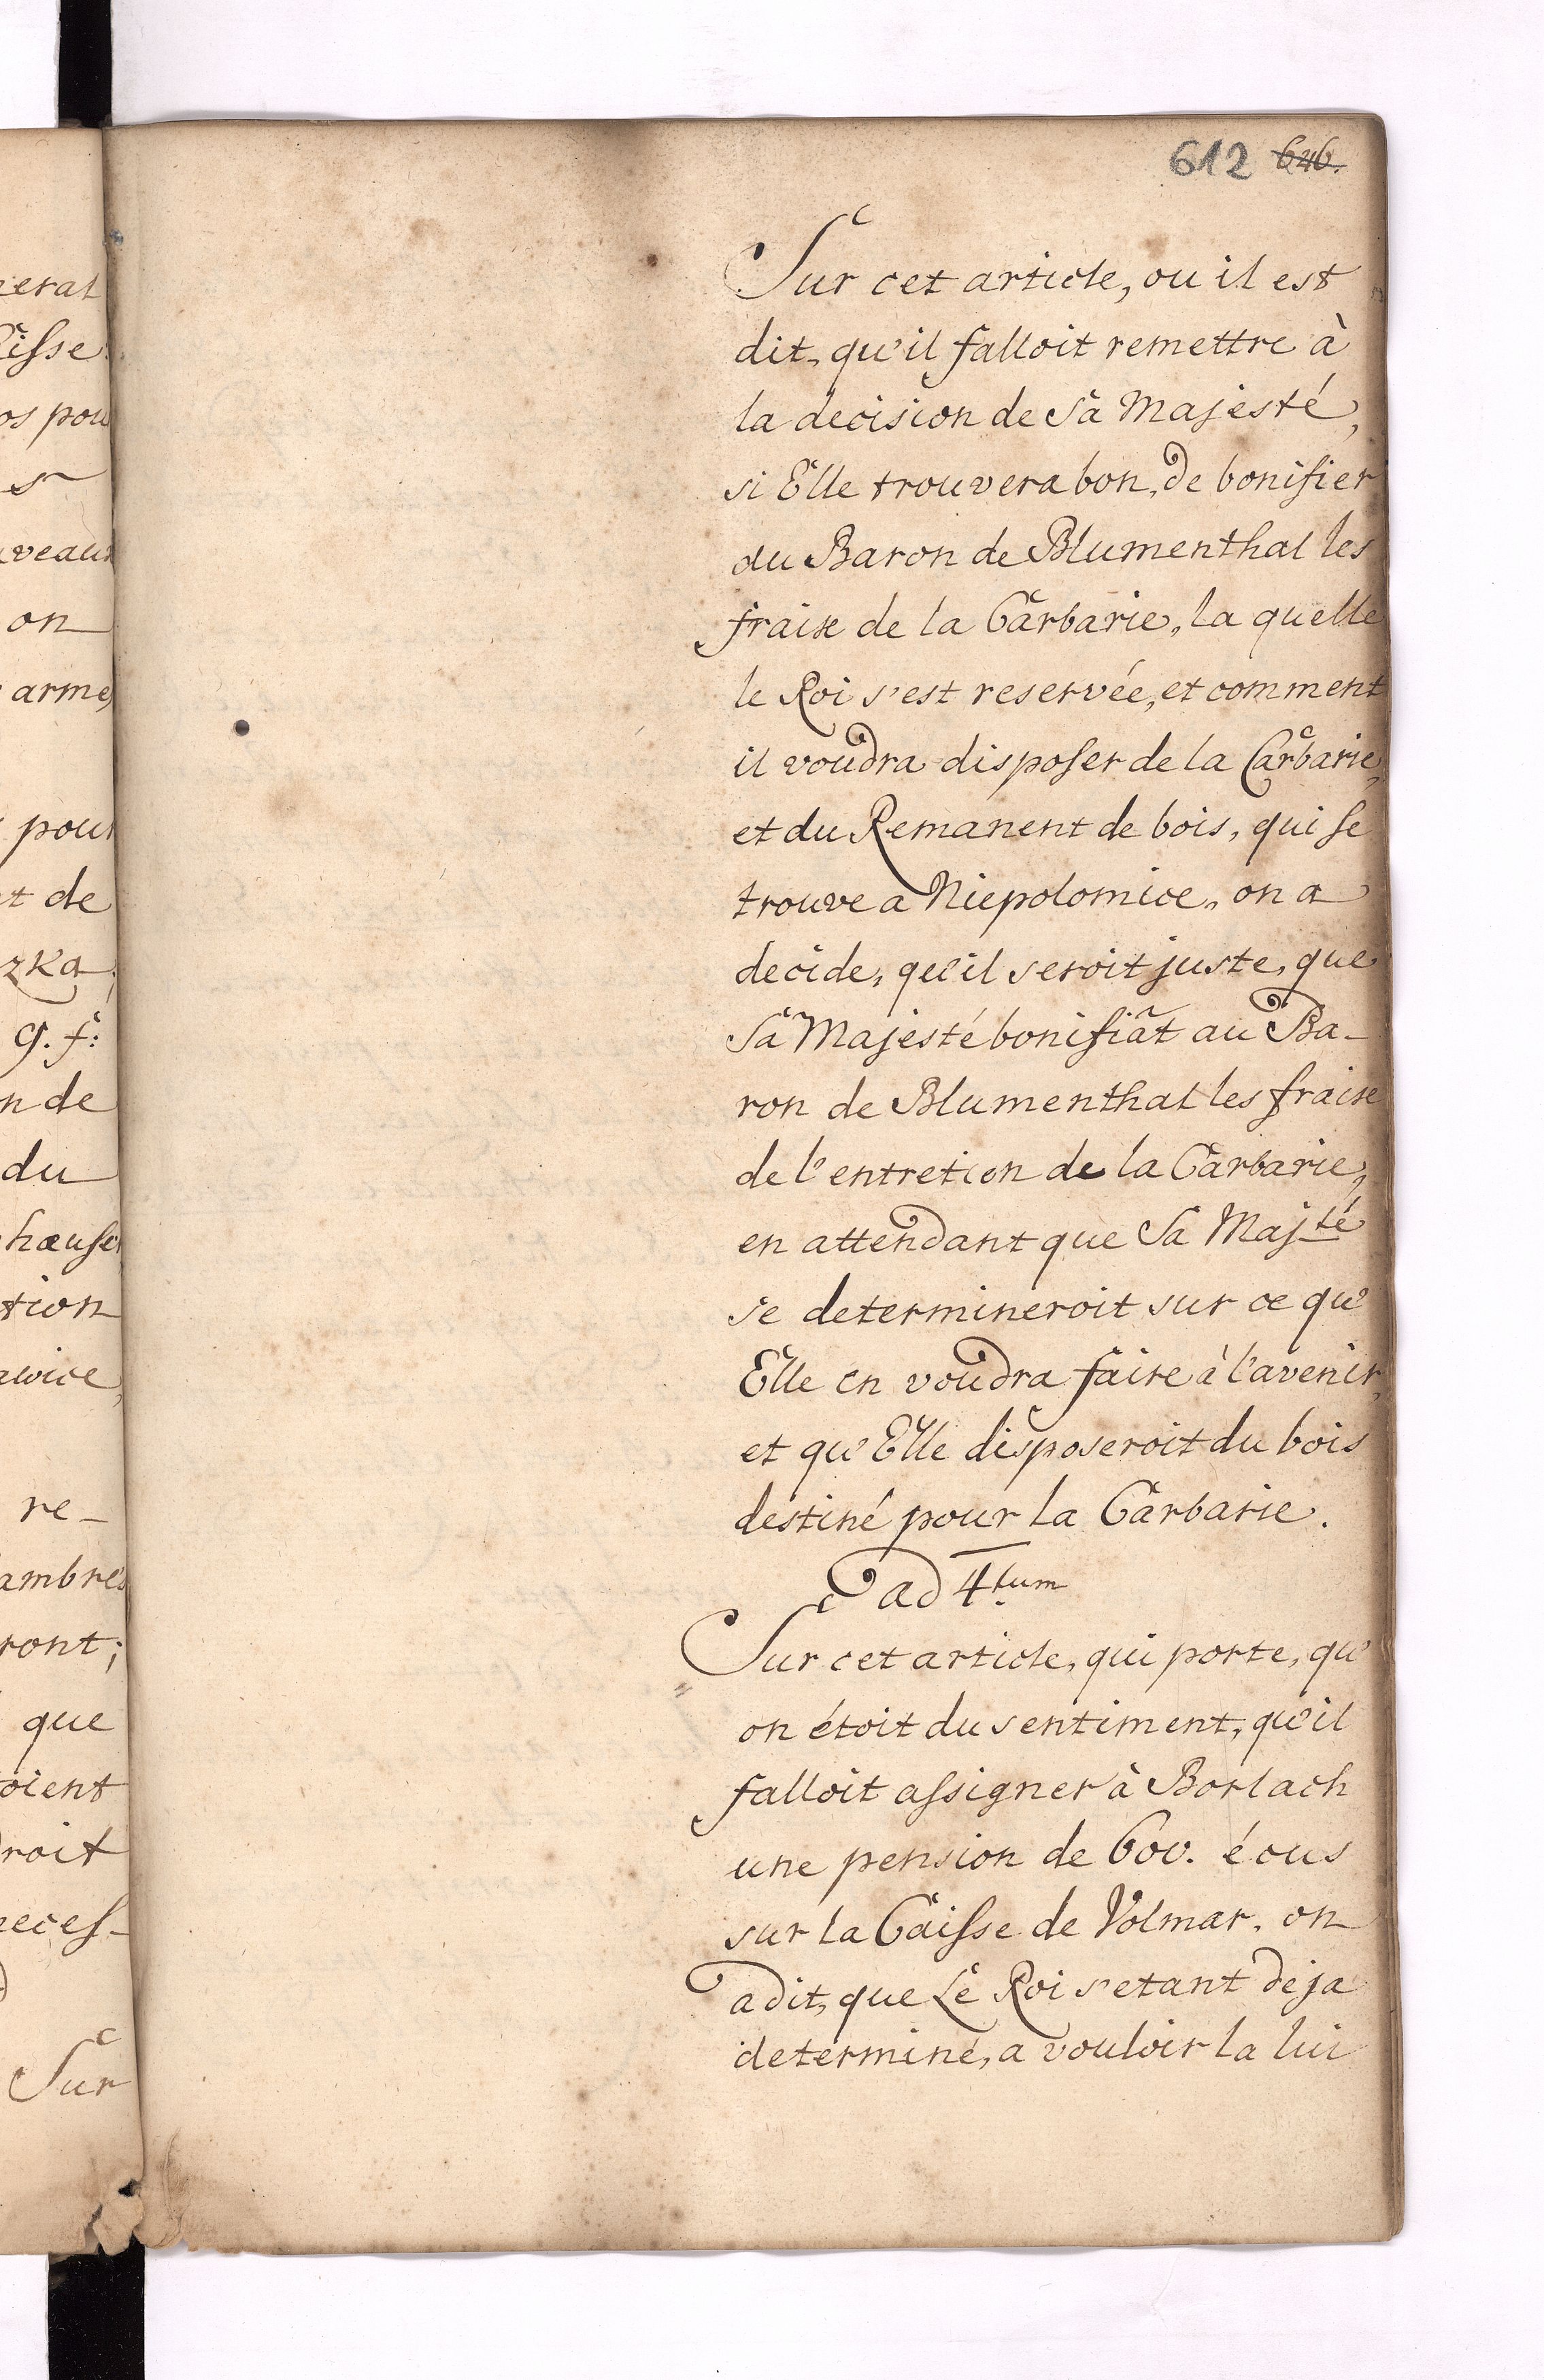 612 646.
Sur cet article, ou il est
dit, qu'il falloit remettre à
la decision de Sa Majesté,
si Elle trouvera bon, de bonifier
au Baron de Blumenthal les
fraise de la Carbarie, la quelle
le Roi s'est reservée, et comment
il voudra disposer de la Carbarie,
et du Remanent de bois, qui se
trouve a Niepolomice, on a
decide, qu'il seroit juste, que
Sa Majesté bonifiat au Ba-
ron de Blumenthal les fraise
de l'entretien de la Carbarie,
en attendant que Sa Majté
se determineroit sur ce qu'
Elle en voudra faire à l'avenir,
et qu'Elle disposeroit du bois
destiné pour la Carbarie.
ad 4tum
Sur cet article, qui porte, qu'
on étoit du sentiment, qu'il
falloit assigner à Borlach
une pension de 600. écus
sur la Caisse de Volmar, on
a dit, que Le Roi s'etant deja
determiné, a vouloir la lui
erat
isse
os pou
veaux
on
arme
pour
t de
zka
9. f:
n de
du
hause
tion
awice,
re-
ambres
ront;
que
oient
roit
neces-
Sur